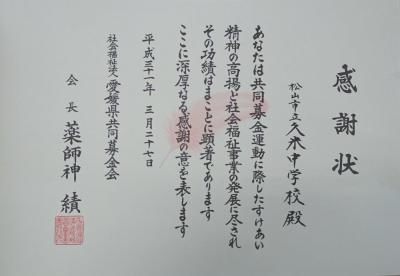 感謝状
松山市立久米中学校殿
あなたは共同募金運動に際したすけあい
精神の高揚と社会福祉事業の発展に尽され
その功績はまことに顕著であります
ここに深厚なる感謝の意を表します
平成三十一年 三月二十七日
社会福祉法人 愛媛県共同募金会
会長 薬師神 績